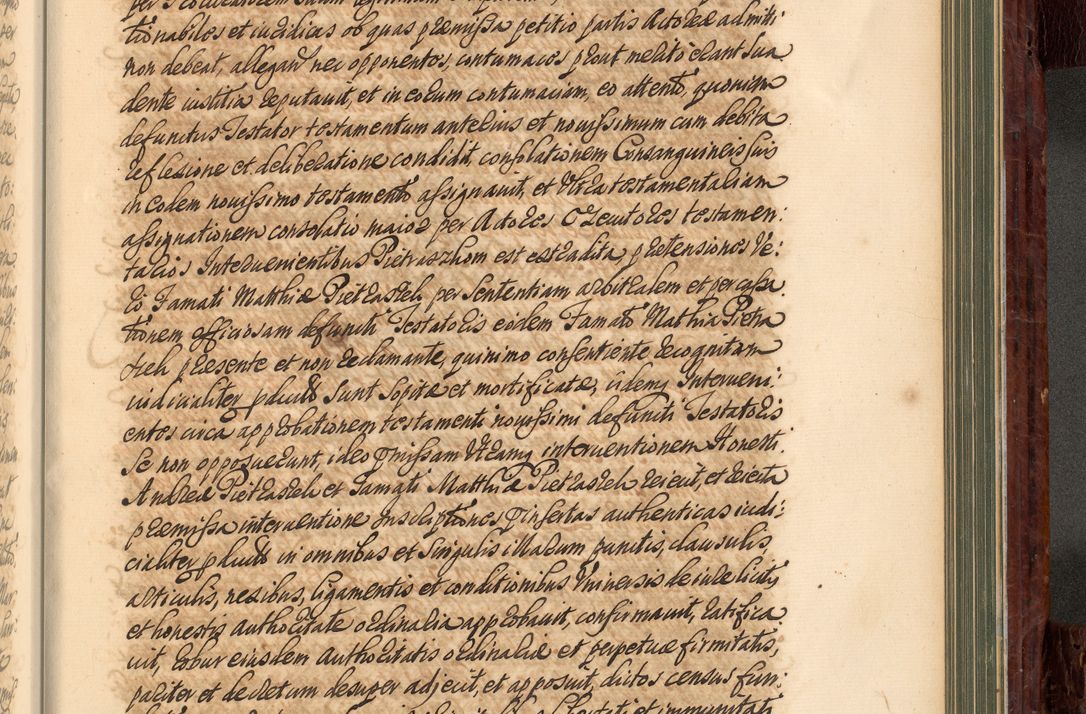 tionabiles et iuridicas ob quas præmissa petitio partis Actoreæ admitti
non debeat, allegan nec opponentes, contumaces prout merito erant sua
dente iustitia reputauit, et in eorum contumaciam, eo attento, quoniam
defunctus Testator testamentum anterius et nouissimum cum debita
reflexione et deliberatione condidit, consolationem Consanguineis suis
in eodem nouissimo testamento assignauit, et Vltra testamentaliam
assignationem consolatio maior per Actores Executores testamen:
tarios Interuenientibus Pietraszkom est extradita, prætensiones Ve:
ro Famati Matthiæ Pietraszek per Sententiam arbitralem et per cassa
tionem officiosam defuncti Testatoris eidem Famato Mathia Pietra
szek præsente et non reclamante, quinimo consentiente recognitam
iudicialiter produci sunt sopitæ et mortificatæ, iidemq Interueni:
entes circa approbationem testamenti nouissimi defuncti Testatoris
se non opposuerunt, ideo præmissam Vtramq interuentionem Honesti
Andreæ Pietraszek et Famati Matthiæ Pietraszek reiecit, et reiecta
præmissa interuentione Inscriptiones præinsertas authenticas iudi:
cialiter produci in omnibus et singulis illarum punctis, clausulis,
articulis, nexibus, ligamentis et conditionibus Vniuersis de iure licitis
et honestis Authoritate ordinaria approbauit, confirmauit, ratifica
uit, robur eiusdem Authoritatis ordinariæ et perpetuæ firmitatis,
pariter et decretum desuper adiecit, et apposuit, dictos census fun: